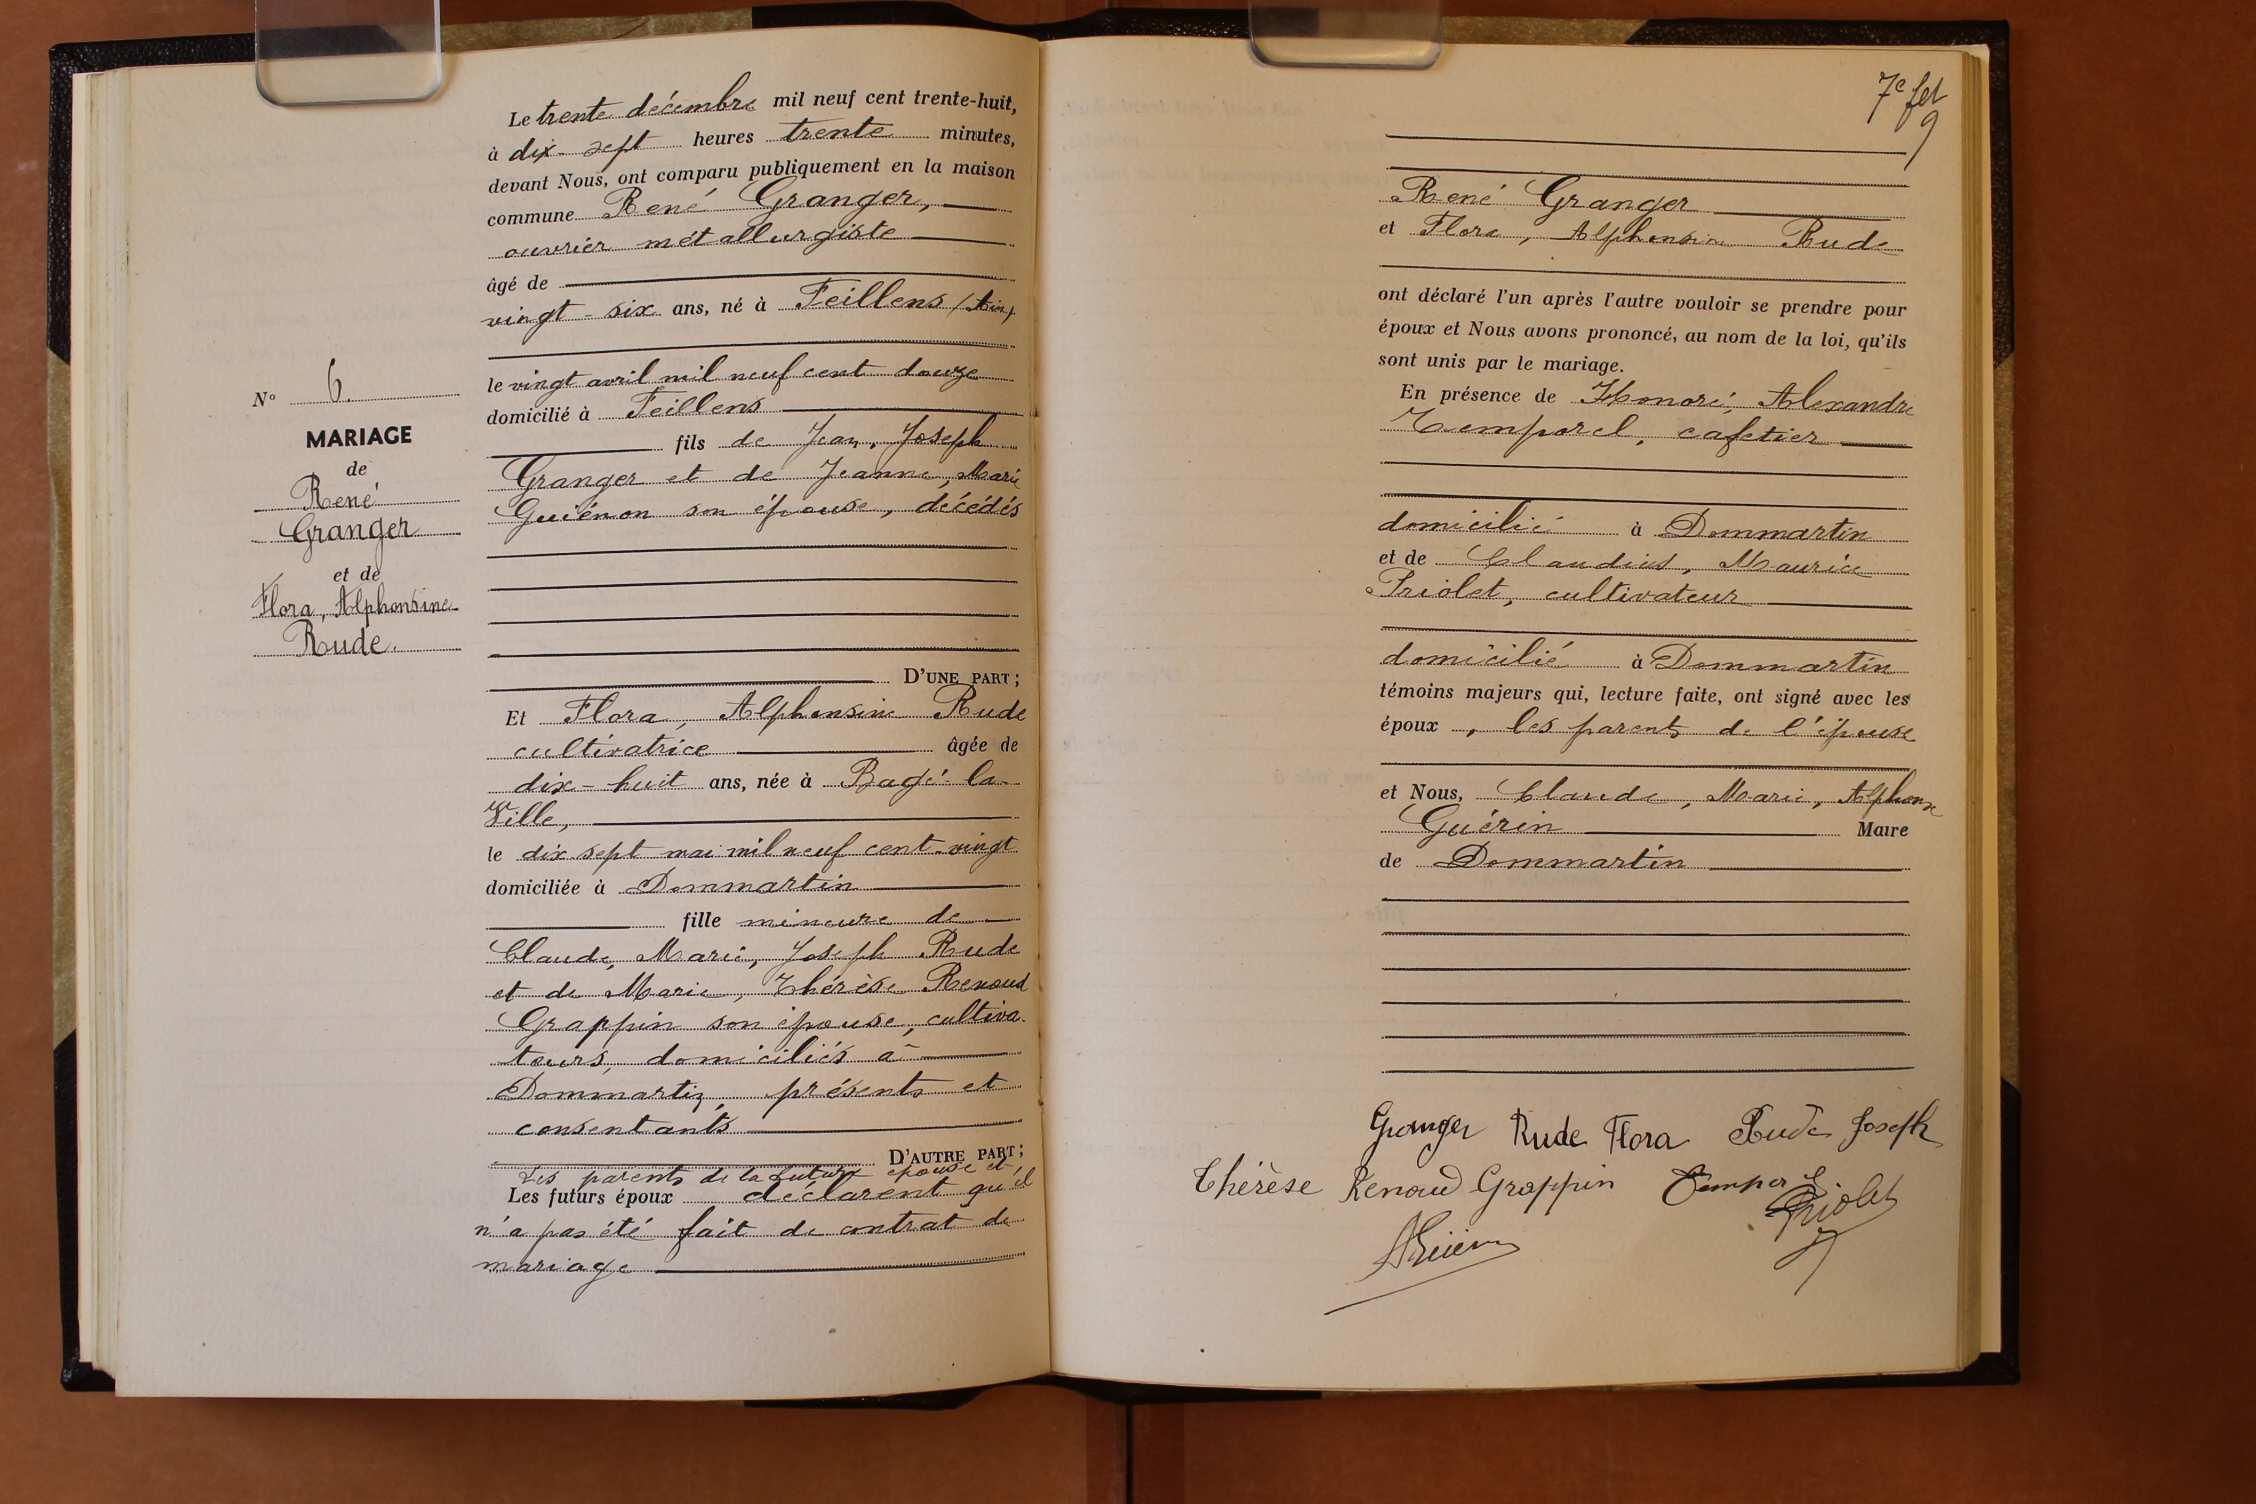 Le trente décembre mil neuf cent trente-huit,
à dix-sept heures trente minutes,
devant Nous, ont comparu publiquement en la maison
commune René Granger,
ouvrier métallurgiste
âgé de
vingt-six ans, né à Feillens (Ain)
le vingt avril mil neuf cent douze
domicilié à Feillens
fils de Jean, Joseph
Granger et de Jeanne, Marie
Guiénon son épouse, décédés
D'UNE PART;
Et Flora, Alphonsine Rude
cultivatrice âgée de
dix-huit ans, née à Bagé-la-
Ville,
le dix sept mai mil neuf cent vingt
domiciliée à Dommartin
fille mineure de
Claude, Marie, Joseph Rude
et de Marie, Thérèse Renoud
Grappin son épouse, cultiva-
teurs, domiciliés à
Dommartin, présents et
consentants
D'AUTRE PART;
Les parents de la future épouse et
Les futurs époux déclarent qu'il
n'a pas été fait de contrat de
mariage
N° 6.
MARIAGE
de
René
Granger
et de
Flora, Alphonsine
Rude.
7e fet
9
René Granger
et Flora, Alphonsine Rude
ont déclaré l'un après l'autre vouloir se prendre pour
époux et Nous avons prononcé, au nom de la loi, qu'ils
sont unis par le mariage.
En présence de Honoré, Alexandre
Temporel, cafetier
domicilié à Dommartin
et de Claudius, Maurice
Priolet, cultivateur
domicilié à Dommartin
témoins majeurs qui, lecture faite, ont signé avec les
époux, les parents de l'épouse
et Nous, Claude, Marie, Alphonse
Guérin Maire
de Dommartin
Granger Rude Flora Rude Joseph
Thérèse Renoud Grappin
Priolet